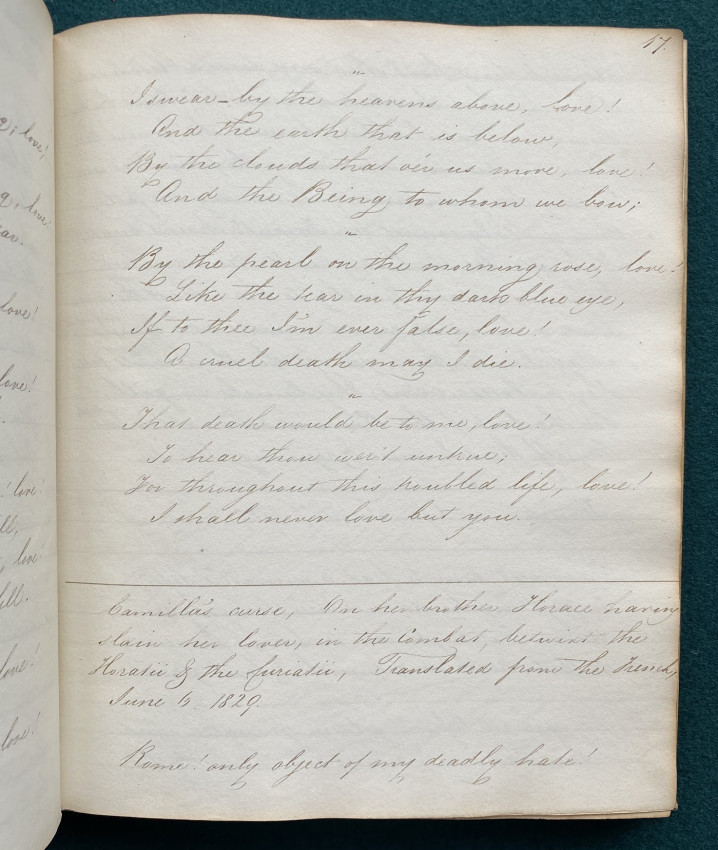 57.
"
I swear _ by the heavens above, love!
And the earth that is below,
By the clouds that o'er us move, love!
And the Being to whom we bow;
"
By the pearl on the morning rose, love!
Like the tear in thy dark blue eye,
If to thee I'm ever false, love!
A cruel death may I die.
"
That death would be to me, love!
To hear thou wer't untrue;
For throughout this troubled life, love!
I shall never love but you.
Camilla's curse, On her brother Horace having
slain her lover, in the Combat, betwixt the
Horatii & the Curiatii, Translated from the French,
June 1829.
Rome! only object of my deadly hate!
love!
love!
ear.
love!
love!
love!
ll,
love!
ill.
love!
love!